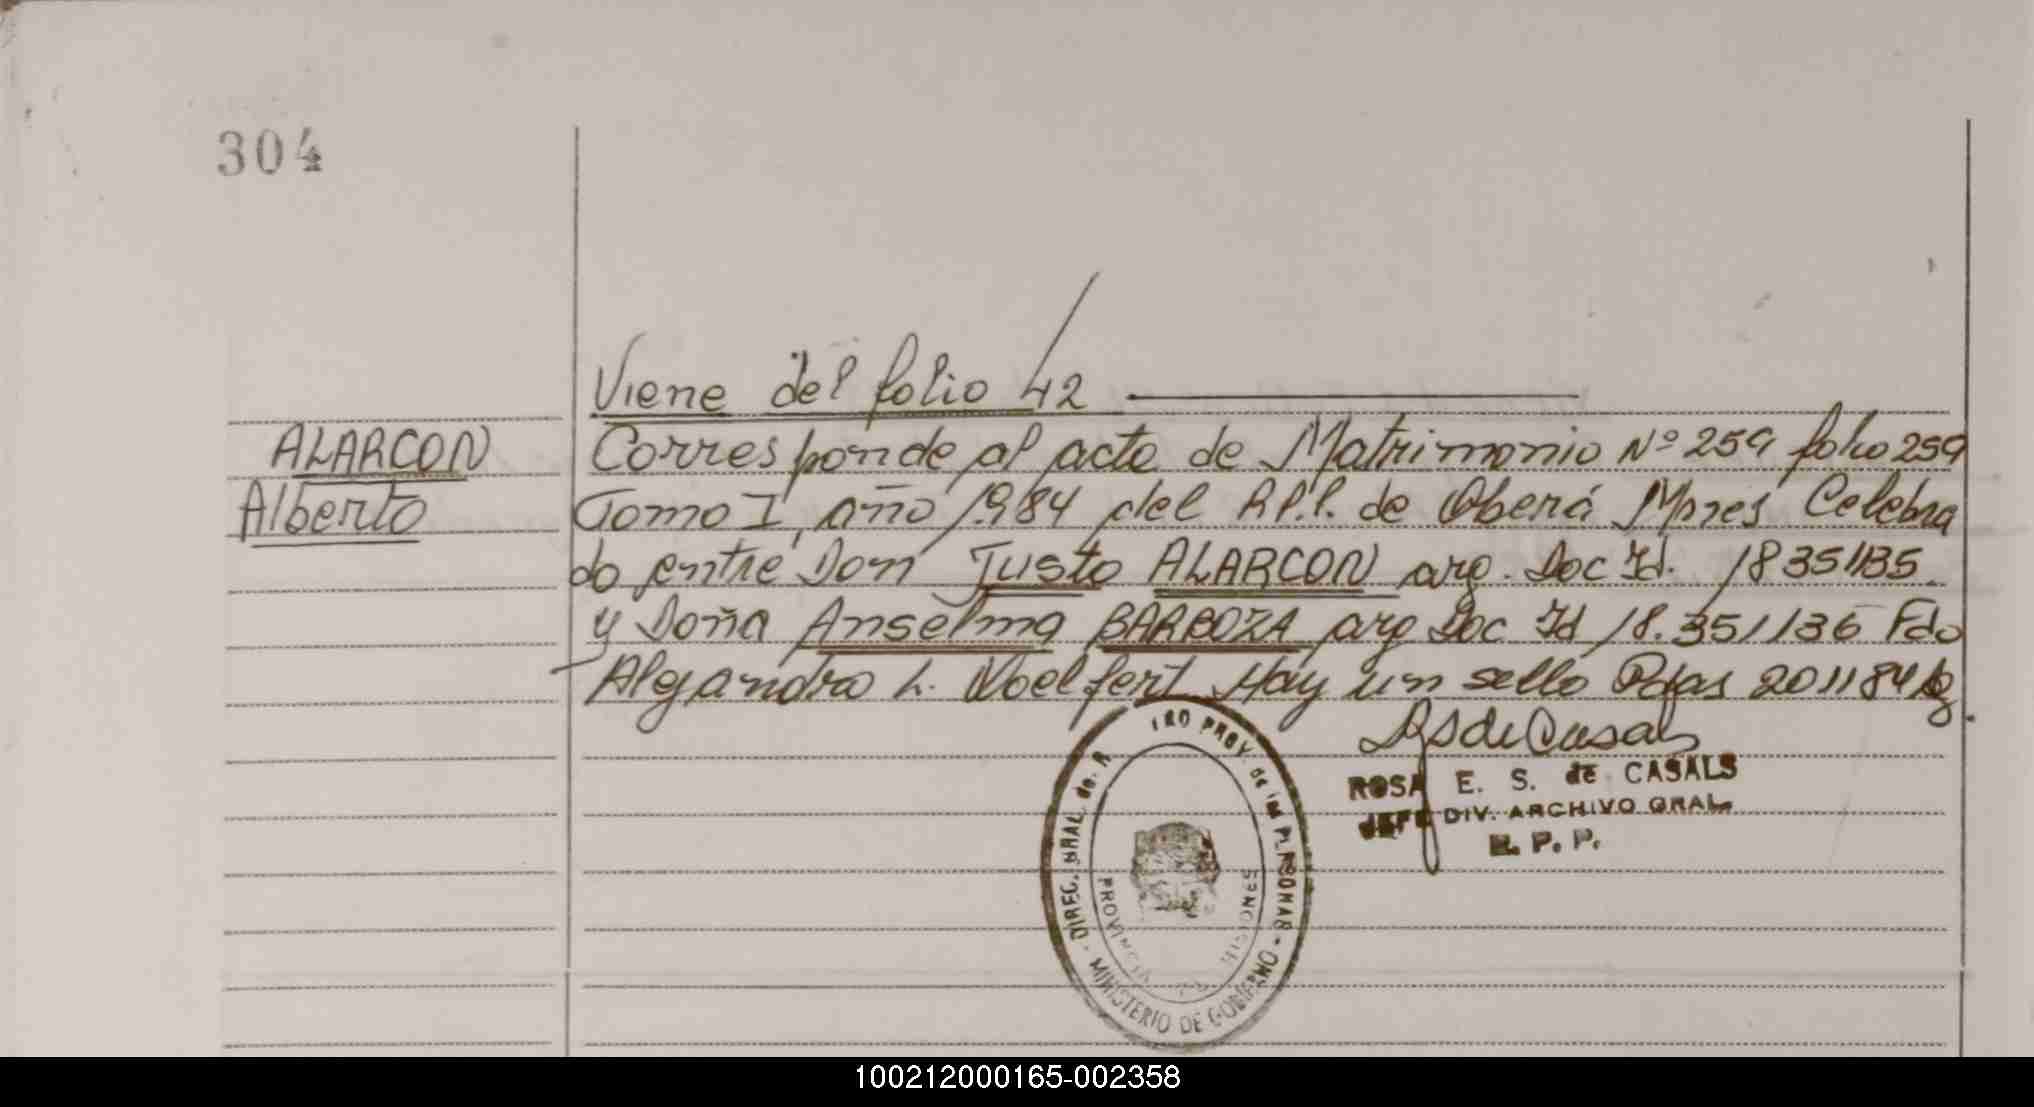 304
Viene del folio 42
ALARCON
Corresponde al acta de Matrimonio Nº 259 folio 259
Alberto
Tomo I, año 1.984 del R.P.P. de Oberá Mnes Celebra
do entre Don Justo ALARCON arg. Doc Id. 18351135
y Doña Anselma BARBOZA arg Doc Id 18.351136 Fdo
Alejandro L. Noelfert Hay un sello Pdas 201184
ROSA E. S. de CASALS
JEFE DIV. ARCHIVO GRAL.
R. P. P.
DIREC. GRAL. del R TRO PROV. de las PERSONAS - MINISTERIO DE GOBIERNO -
PROVINCIA MISIONES
100212000165-002358